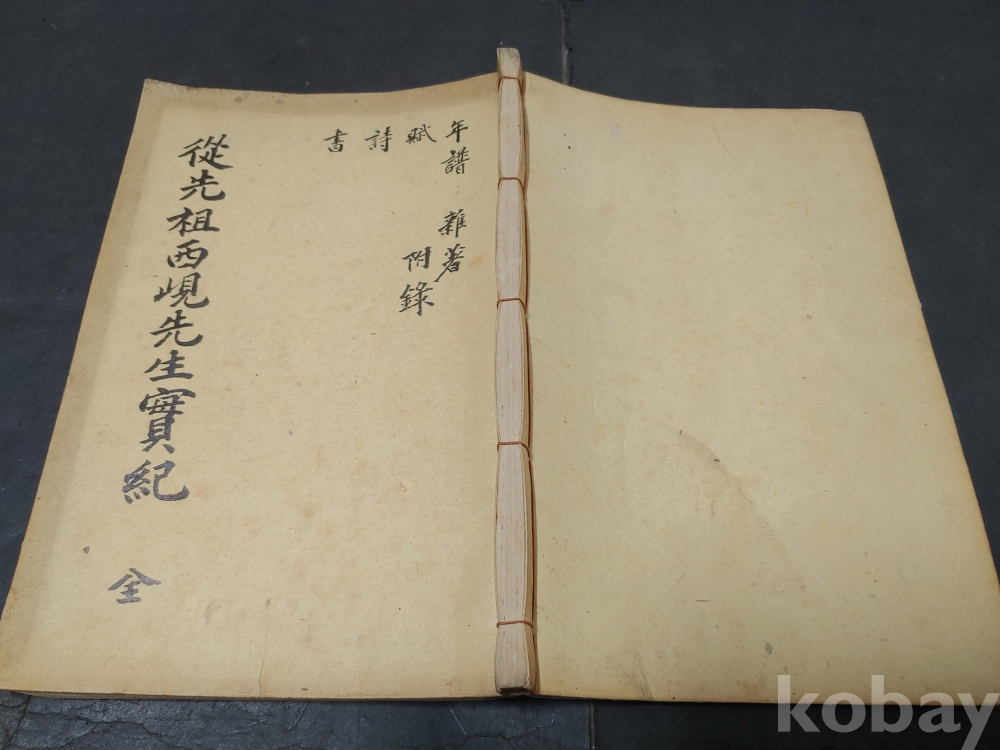 年譜 雜著
賦 附錄
詩
書
從先祖西峴先生實紀 全
kobay